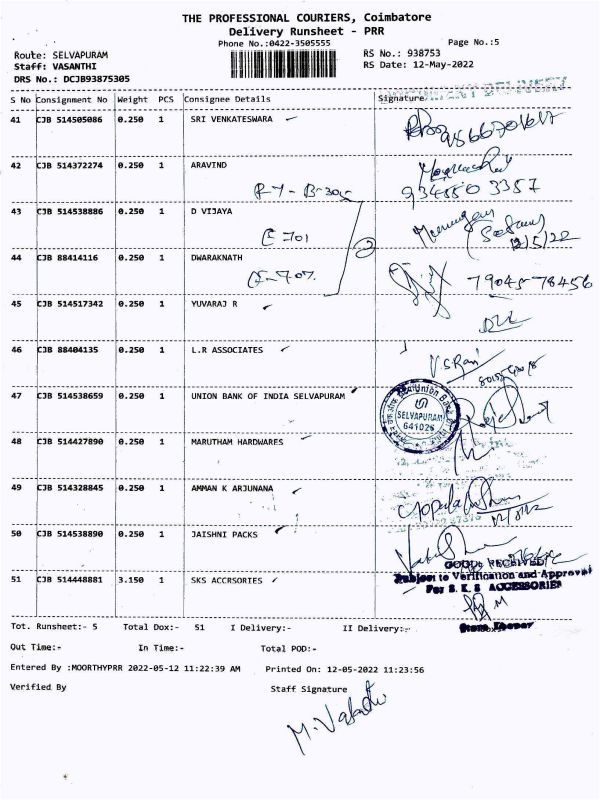 THE PROFESSIONAL COURIERS, Coimbatore
Delivery Runsheet - PRR
Phone No.:0422-3505555
Page No.:5
Route: SELVAPURAM
RS No.: 938753
Staff: VASANTHI
RS Date: 12-May-2022
DRS No.: DCJB93875305
S No Consignment No Weight PCS Consignee Details Signature
41 CJB 514505086 0.250 1 SRI VENKATESWARA
42 CJB 514372274 0.250 1 ARAVIND
934550 3357
43 CJB 514538886 0.250 1 D VIJAYA
E 701
12/5/22
44 CJB 88414116 0.250 1 DWARAKNATH
E-707
79045-78456
45 CJB 514517342 0.250 1 YUVARAJ R
46 CJB 88404135 0.250 1 L.R ASSOCIATES
V.S Rani
47 CJB 514538659 0.250 1 UNION BANK OF INDIA SELVAPURAM
Union Bank
SELVAPURAM
641026
48 CJB 514427890 0.250 1 MARUTHAM HARDWARES
49 CJB 514328845 0.250 1 AMMAN K ARJUNANA
50 CJB 514538890 0.250 1 JAISHNI PACKS
GOODS RECEIVED
Subject to Verification and Approval
For S. K. S ACCESSORIES
51 CJB 514448881 3.150 1 SKS ACCRSORIES
Store Keeper
Tot. Runsheet:- 5 Total Dox:- 51 I Delivery:- II Delivery:-
Out Time:- In Time:- Total POD:-
Entered By :MOORTHYPRR 2022-05-12 11:22:39 AM Printed On: 12-05-2022 11:23:56
Verified By Staff Signature
M. Vasanthi